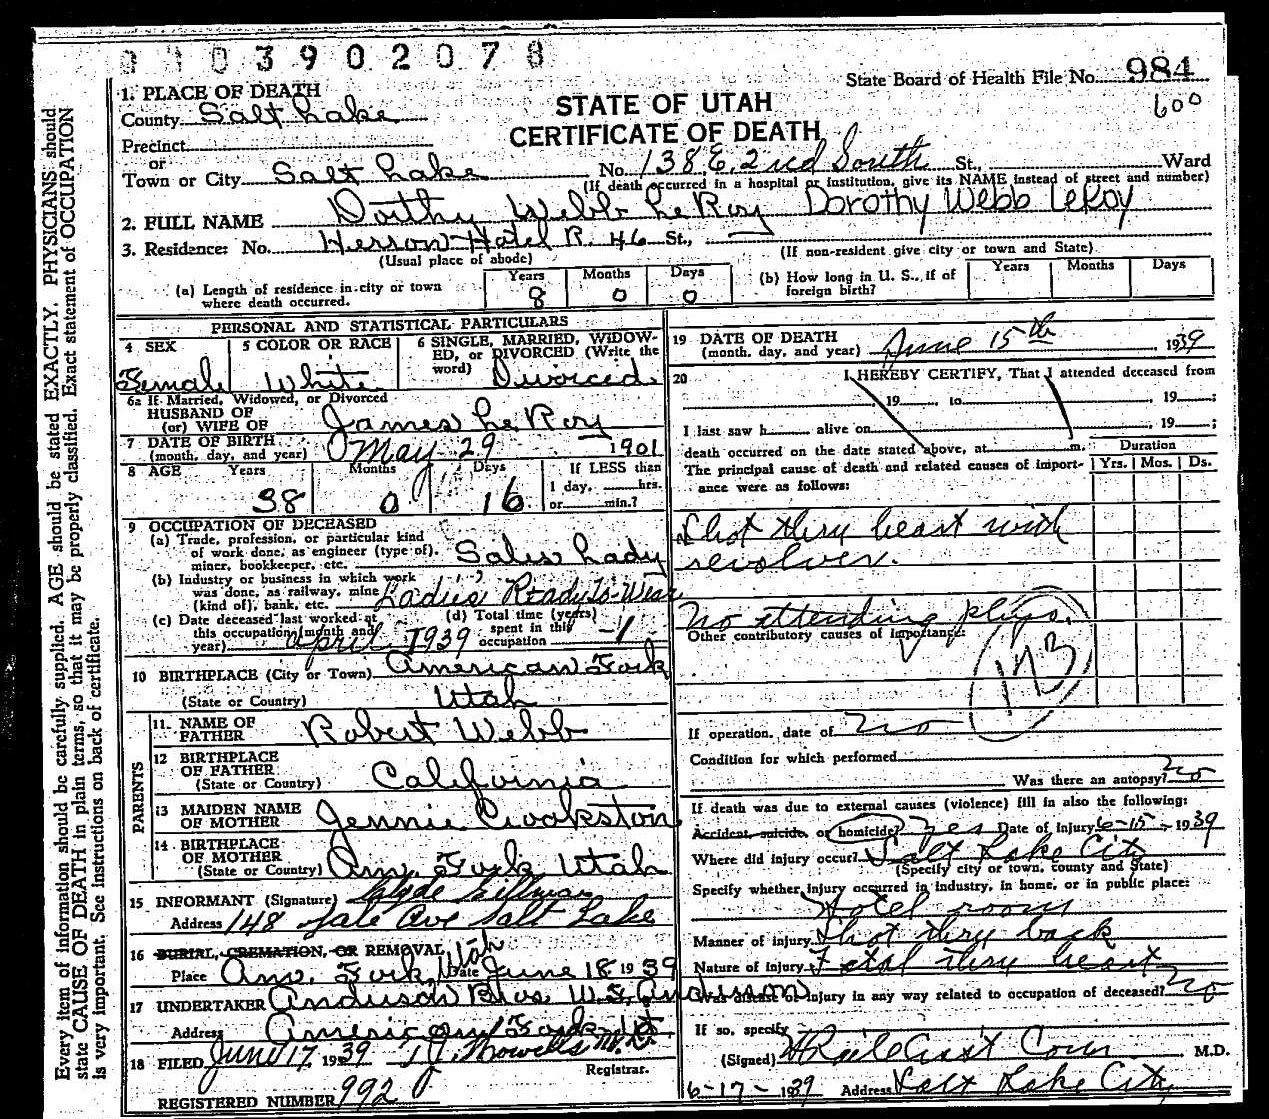 3902078
State Board of Health File No. 984
600
1. PLACE OF DEATH
County Salt Lake
STATE OF UTAH
CERTIFICATE OF DEATH
Precinct
or
Town or City Salt Lake No. 138 E. 2nd South St., Ward
(If death occurred in a hospital or institution, give its NAME instead of street and number)
2. FULL NAME Dorthy Webb LeRoy Dorothy Webb LeRoy
3. Residence: No. Hotel R. 46 St.,
(Usual place of abode)
(If non-resident give city or town and State)
(a) Length of residence in city or town where death occurred.
Years Months Days
8 0 0
(b) How long in U. S., if of foreign birth?
Years Months Days
PERSONAL AND STATISTICAL PARTICULARS
4 SEX
Female
5 COLOR OR RACE
White
6 SINGLE, MARRIED, WIDOWED, or DIVORCED (Write the word)
Divorced
6a If Married, Widowed, or Divorced
HUSBAND OF
(or) WIFE OF James LeRoy
7 DATE OF BIRTH
(month, day, and year) May 29 1901
8 AGE Years Months Days If LESS than
38 0 16 1 day, hrs.
or min.?
9 OCCUPATION OF DECEASED
(a) Trade, profession, or particular kind
of work done, as engineer (type of),
miner, bookkeeper, etc. Sales Lady
(b) Industry or business in which work
was done, as railway, mine
(kind of), bank, etc. Ladies' Ready to-Wear
(c) Date deceased last worked at
this occupation (month and
year) April 1939
(d) Total time (years)
spent in this
occupation 1
10 BIRTHPLACE (City or Town) American Fork
(State or Country) Utah
PARENTS
11. NAME OF
FATHER Robert Webb
12 BIRTHPLACE
OF FATHER
(State or Country) California
13 MAIDEN NAME
OF MOTHER Jennie Crookston
14 BIRTHPLACE
OF MOTHER
(State or Country) Am. Fork Utah
15 INFORMANT (Signature) Clyde
Address 148 Ave Salt Lake
16 BURIAL, CREMATION, OR REMOVAL
Place Am. Fork, Utah Date June 18 1939
17 UNDERTAKER Anderson Bros. W.S. Anderson
Address American Fork Ut
18 FILED June 17 1939 M.D.
Registrar.
REGISTERED NUMBER 992
19 DATE OF DEATH
(month, day, and year) June 15th, 1939
20 I HEREBY CERTIFY, That I attended deceased from
, 19 , to , 19 ;
I last saw h alive on , 19 ;
death occurred on the date stated above, at m.
Duration
The principal cause of death and related causes of importance were as follows:
Yrs. Mos. Ds.
Shot thru heart with
revolver.
No attending phys.
Other contributory causes of importance:
173
If operation, date of no
Condition for which performed
Was there an autopsy? no
If death was due to external causes (violence) fill in also the following:
Accident, suicide, or homicide? yes Date of injury 6-15-, 1939
Where did injury occur? Salt Lake City
(Specify city or town, county and State)
Specify whether injury occurred in industry, in home, or in public place:
Hotel room
Manner of injury Shot thru back
Nature of injury Fatal thru heart
Was disease or injury in any way related to occupation of deceased? no
If so, specify
(Signed) M.D.
6-17-39 Address Salt Lake City
Every item of information should be carefully supplied. AGE should be stated EXACTLY. PHYSICIANS should
state CAUSE OF DEATH in plain terms, so that it may be properly classified. Exact statement of OCCUPATION
is very important. See instructions on back of certificate.